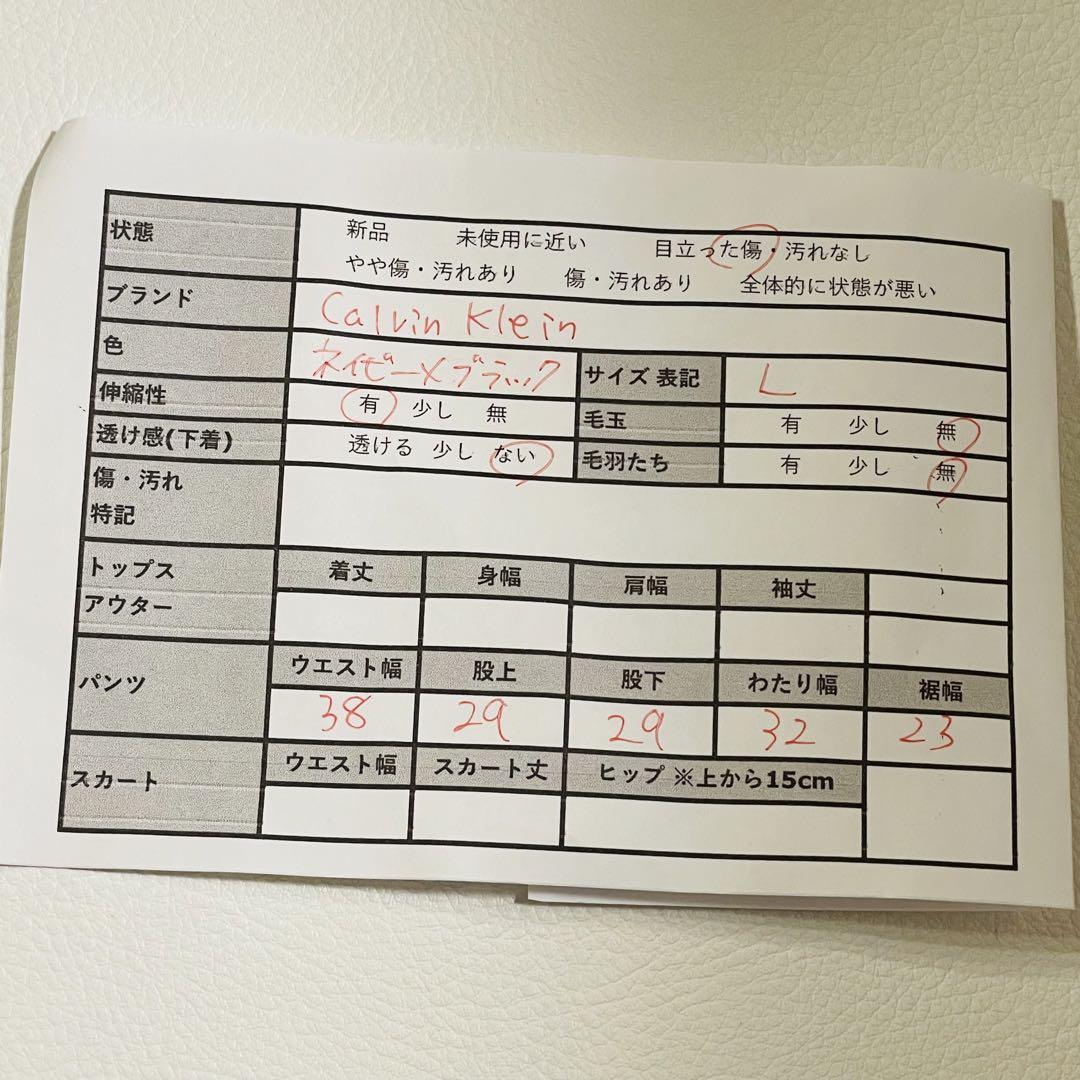 状態 新品 未使用に近い 目立った傷・汚れなし
やや傷・汚れあり 傷・汚れあり 全体的に状態が悪い
ブランド Calvin Klein
色 ネイビー×ブラック サイズ 表記 L
伸縮性 有 少し 無 毛玉 有 少し 無
透け感(下着) 透ける 少し ない 毛羽たち 有 少し 無
傷・汚れ
特記
トップス 着丈 身幅 肩幅 袖丈
アウター
パンツ ウエスト幅 股上 股下 わたり幅 裾幅
38 29 29 32 23
スカート ウエスト幅 スカート丈 ヒップ ※上から15cm